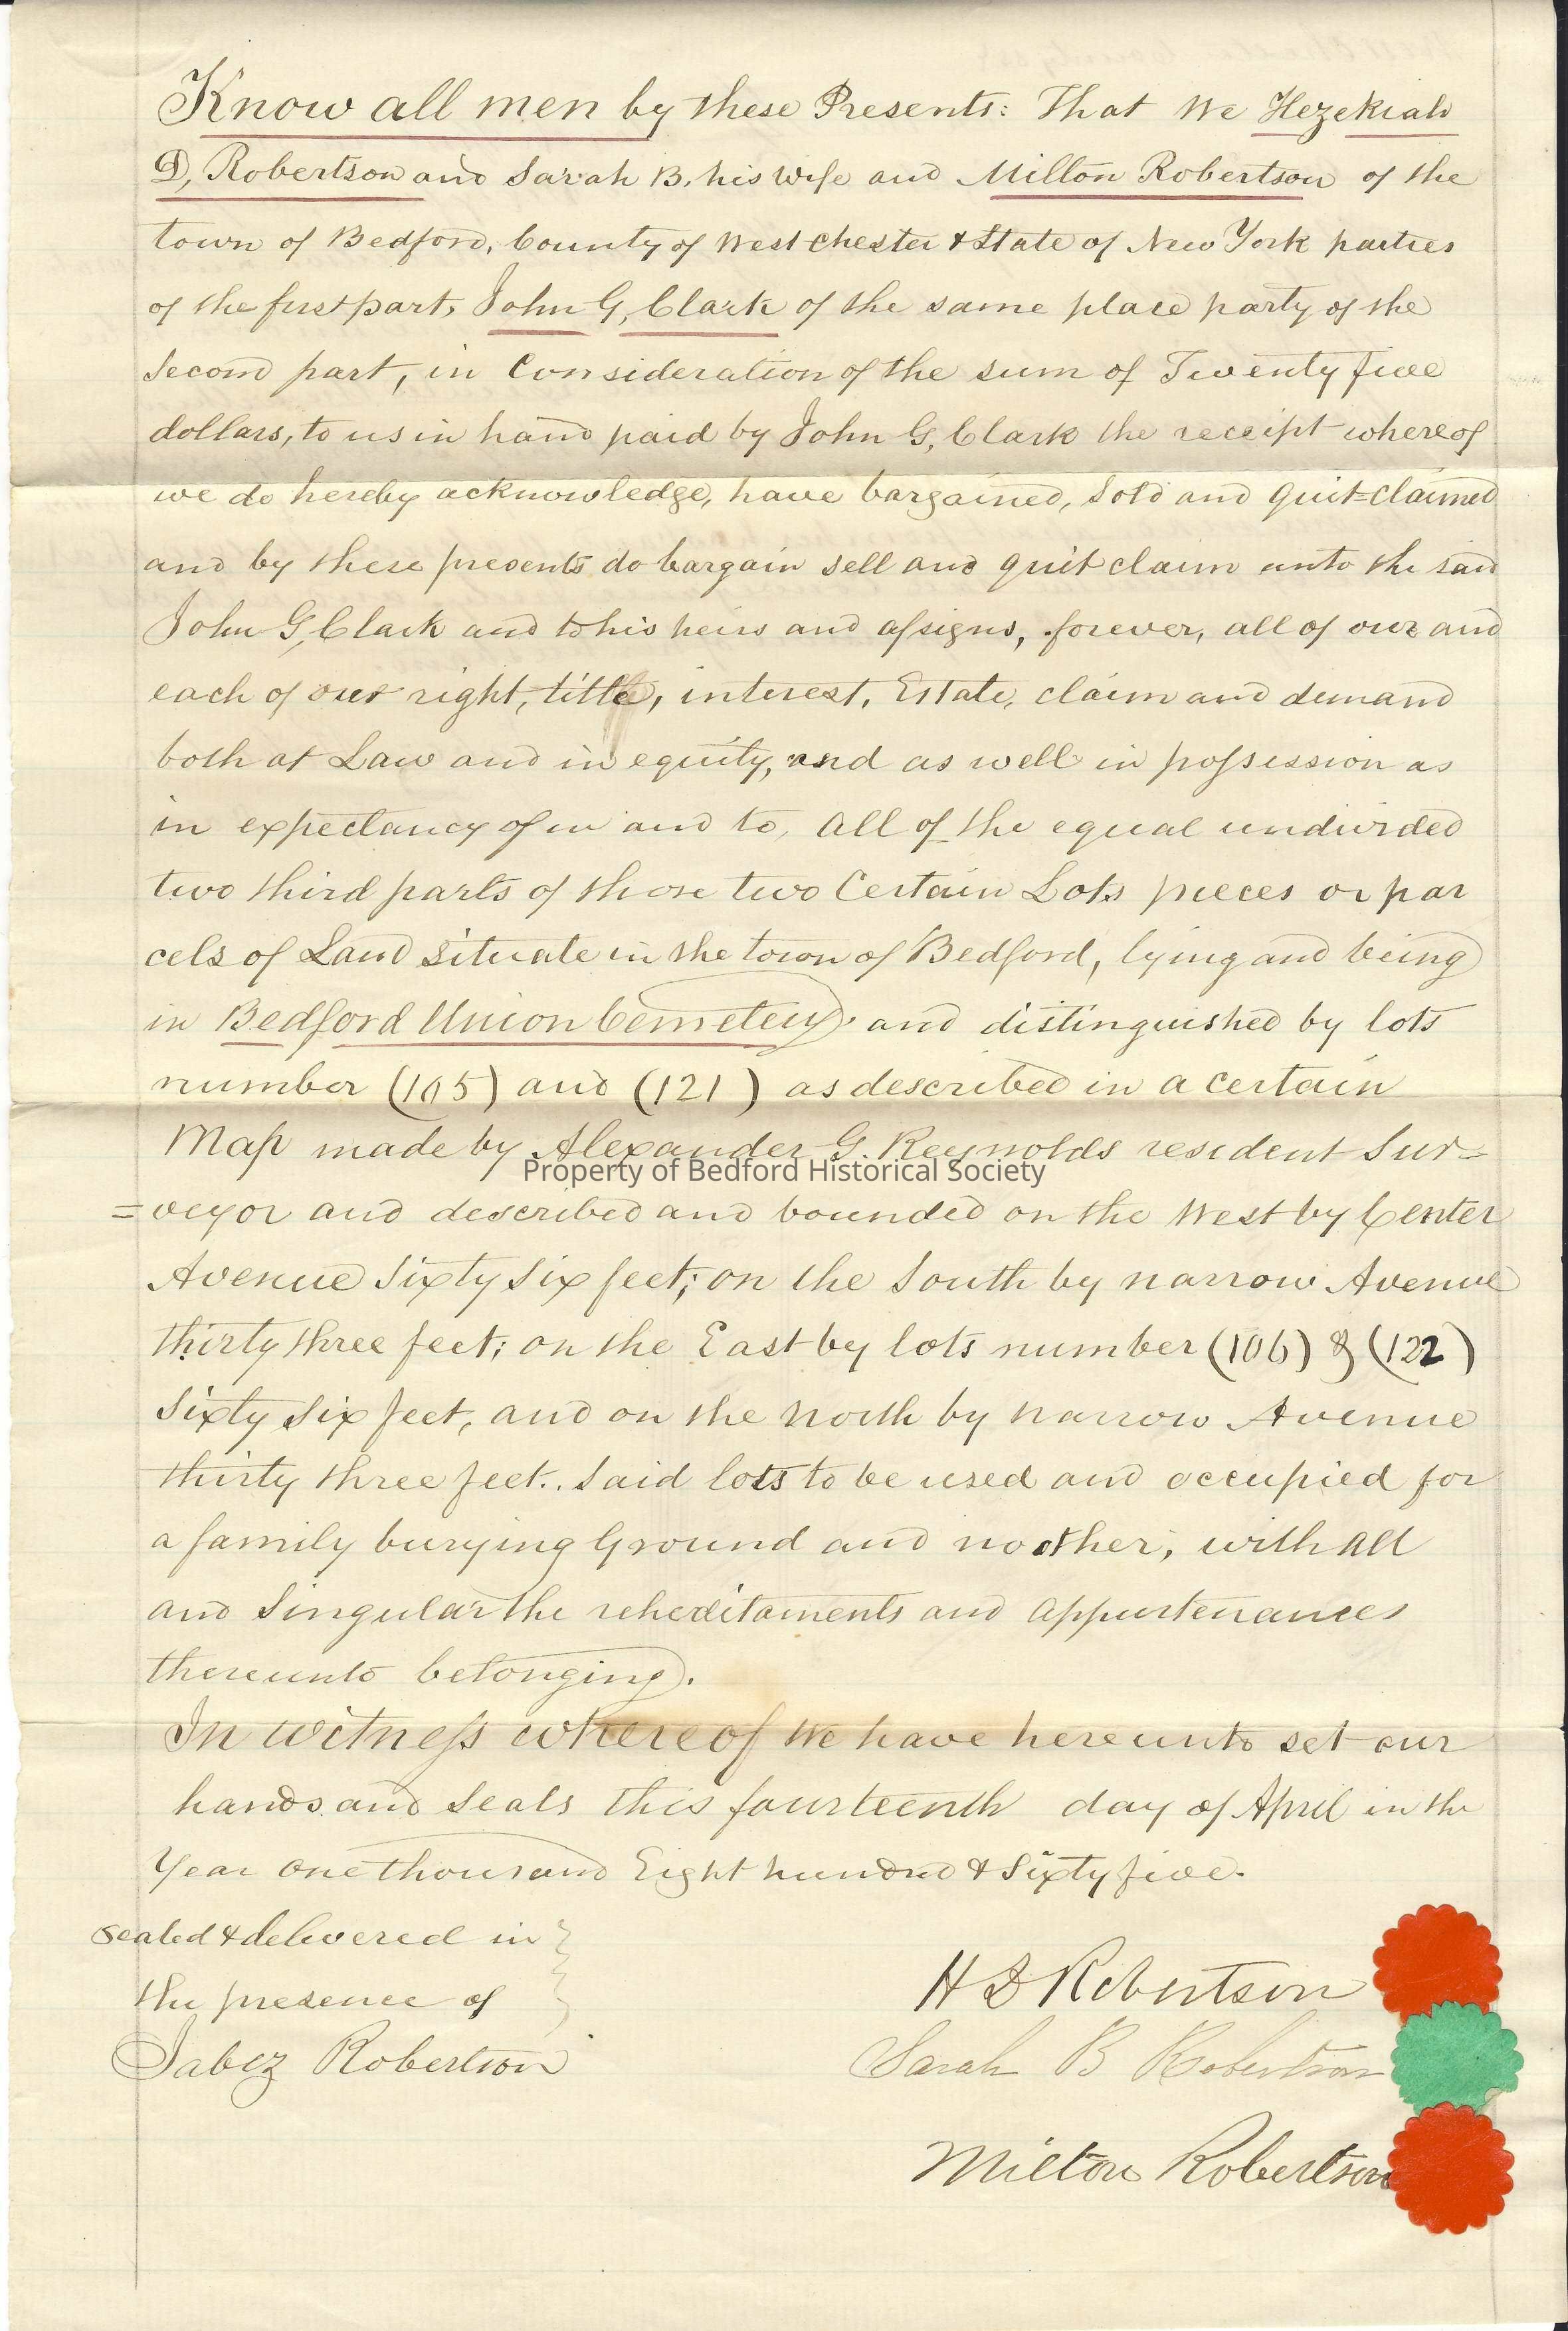 Know all men by these Presents: That We Hezekiah
D, Robertson and Sarah B. his wife and Milton Robertson of the
town of Bedford, County of West chester & State of New York parties
of the first part, John G, Clark of the same place party of the
Second part, in Consideration of the sum of Twenty five
dollars, to us in hand paid by John G, Clark the receipt whereof
we do hereby acknowledge, have bargained, sold and quit=claimed
and by these presents do bargain sell and quit claim unto the said
John G, Clark and to his heirs and assigns, forever, all of our and
each of our right, title, interest, Estate, claim and demand
both at Law and in equity, and as well in possession as
in expectancy of in and to, All of the equal undivided
two third parts of those two Certain Lots pieces or par
cels of Land situate in the town of Bedford, lying and being
in Bedford Union Cemetery, and distinguished by lots
number (105) and (121) as described in a certain
Map made by Alexander G. Reynolds resident Sur=
Property of Bedford Historical Society
=veyor and described and bounded on the West by Center
Avenue Sixty Six feet; on the South by narrow Avenue
thirty three feet; on the East by lots number (106) & (122)
Sixty Six feet, and on the North by narrow Avenue
thirty three feet.. Said lots to be used and occupied for
a family burying Ground and no other, with All
and Singular the reheditaments and Appurtenances
thereunto belonging.
In witness whereof We have hereunto set our
hands and Seals this fourteenth day of April in the
Year One thousand Eight hundred & Sixty five.
Sealed & delivered in
the presence of
Jabez Robertson
H D Robertson
Sarah B Robertson
Milton Robertson